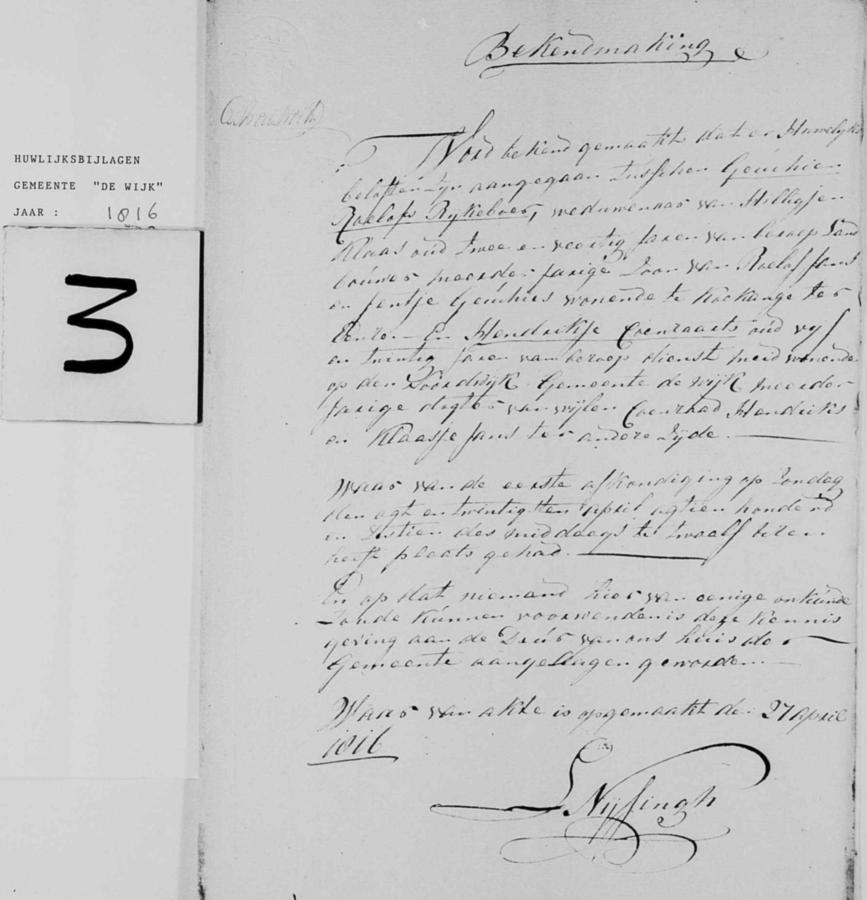 Bekendmaking
HUWLIJKSBIJLAGEN
GEMEENTE "DE WIJK"
JAAR : 1816
3
Word bekend gemaakt dat er Huwelyks
beloften Zyn aangegaan Tusschen Geuchien
Roelofs Rykeboer, weduwenaar van Hilligjen
Klaas oud twee en veertig Jaren van beroep Land
bouwer meerder Jarige Zoon van Roelof Jans
en Jentje Geuchies wonende te Kockange ter
Eenre - En Hendrikje Coenraats oud vyf
en twintig Jaren van beroep dienst meid wonende
op den Gemeente de wijk meerder
Jarige dogter van wijlen Coenraad Hendriks
en Klaasje Jans ter andere Zijde.
Waar van de eerste afkondiging op Zondag
den agt en twintigsten april agtien honderd
en Sestien des middags te twaalf uren
heeft plaats gehad.
En op dat niemand hier van eenige onkunde
Zoude kunnen voorwenden is deze kennis
geving aan de Deur van ons huis der
Gemeente aangeslagen geworden.
Waar van akte is opgemaakt den 27 april
1816
Nijsingh